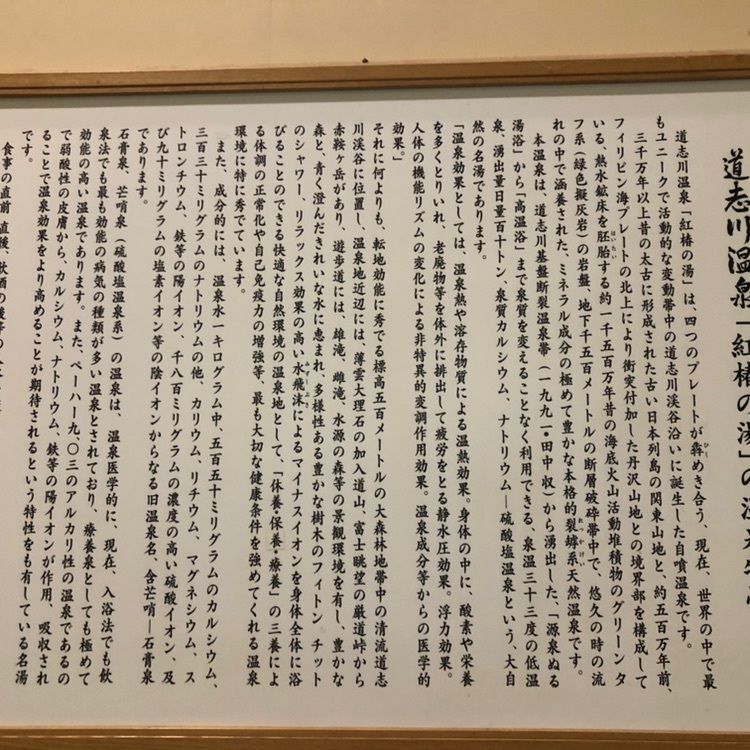 道志川温泉「紅椿の湯」の
道志川温泉「紅椿の湯」は、四つのプレートが犇めき合う、現在、世界の中で最
もユニークで活動的な変動帯中の道志川渓谷沿いに誕生した自噴温泉です。
三千万年以上昔の太古に形成された古い日本列島の関東山地と、約五百万年前、
フィリピン海プレートの北上により衝突付加した丹沢山地との境界部を構成して
いる、熱水鉱床を胚胎する約一千五百万年昔の海底火山活動堆積物のグリーンタ
フ系（緑色擬灰岩）の岩盤、地下千五百メートルの断層破砕帯中で、悠久の時の流
れの中で涵養された、ミネラル成分の極めて豊かな本格的裂罅系天然温泉です。
本温泉は、道志川基盤断裂温泉帯（一九九一・田中 収）から湧出した、「源泉ぬる
湯浴」から「高温浴」まで泉質を変えることなく利用できる、泉温三十三度の低温
泉、湧出量日量百十トン、泉質カルシウム、ナトリウム―硫酸塩温泉という、大自
然の名湯であります。
「温泉効果としては、温泉熱や溶存物質による温熱効果。身体の中に、酸素や栄養
を多くとりいれ、老廃物等を体外に排出して疲労をとる静水圧効果。浮力効果。
人体の機能リズムの変化による非特異的変調作用効果。温泉成分等からの医学的
効果。」
それに何よりも、転地効能に秀でる標高五百メートルの大森林地帯中の清流道志
川渓谷に位置し、温泉地近辺には、薄雲大理石の加入道山、富士眺望の厳道峠から
赤鞍ヶ岳があり、遊歩道には、雄滝、雌滝、水源の森等の景観環境を有し、豊かな
森と、青く澄んだきれいな水に恵まれ、多様性ある豊かな樹木のフィトン チット
のシャワー、リラックス効果の高い水飛沫によるマイナスイオンを身体全体に浴
びることのできる快適な自然環境の温泉地として、「休養・保養・療養」の三養によ
る体調の正常化や自己免疫力の増強等、最も大切な健康条件を強めてくれる温泉
環境に特に秀でています。
また、成分的には、温泉水一キログラム中、五百五十ミリグラムのカルシウム、
三百三十ミリグラムのナトリウムの他、カリウム、リチウム、マグネシウム、ス
トロンチウム、鉄等の陽イオン、千八百ミリグラムの濃度の高い硫酸イオン、及
び九十ミリグラムの塩素イオン等の陰イオンからなる旧温泉名、含芒硝―石膏泉
であります。
石膏泉、芒硝泉（硫酸塩温泉系）の温泉は、温泉医学的に、現在、入浴法でも飲
泉法でも最も効能の病気の種類が多い温泉とされており、療養泉としても極めて
効能の高い温泉であります。また、ペーハー九、〇三のアルカリ性の温泉であるの
で弱酸性の皮膚から、カルシウム、ナトリウム、鉄等の陽イオンが作用、吸収され
ることで温泉効果をより高めることが期待されるという特性をも有している名湯
です。
食事の直前、直後、飲酒の